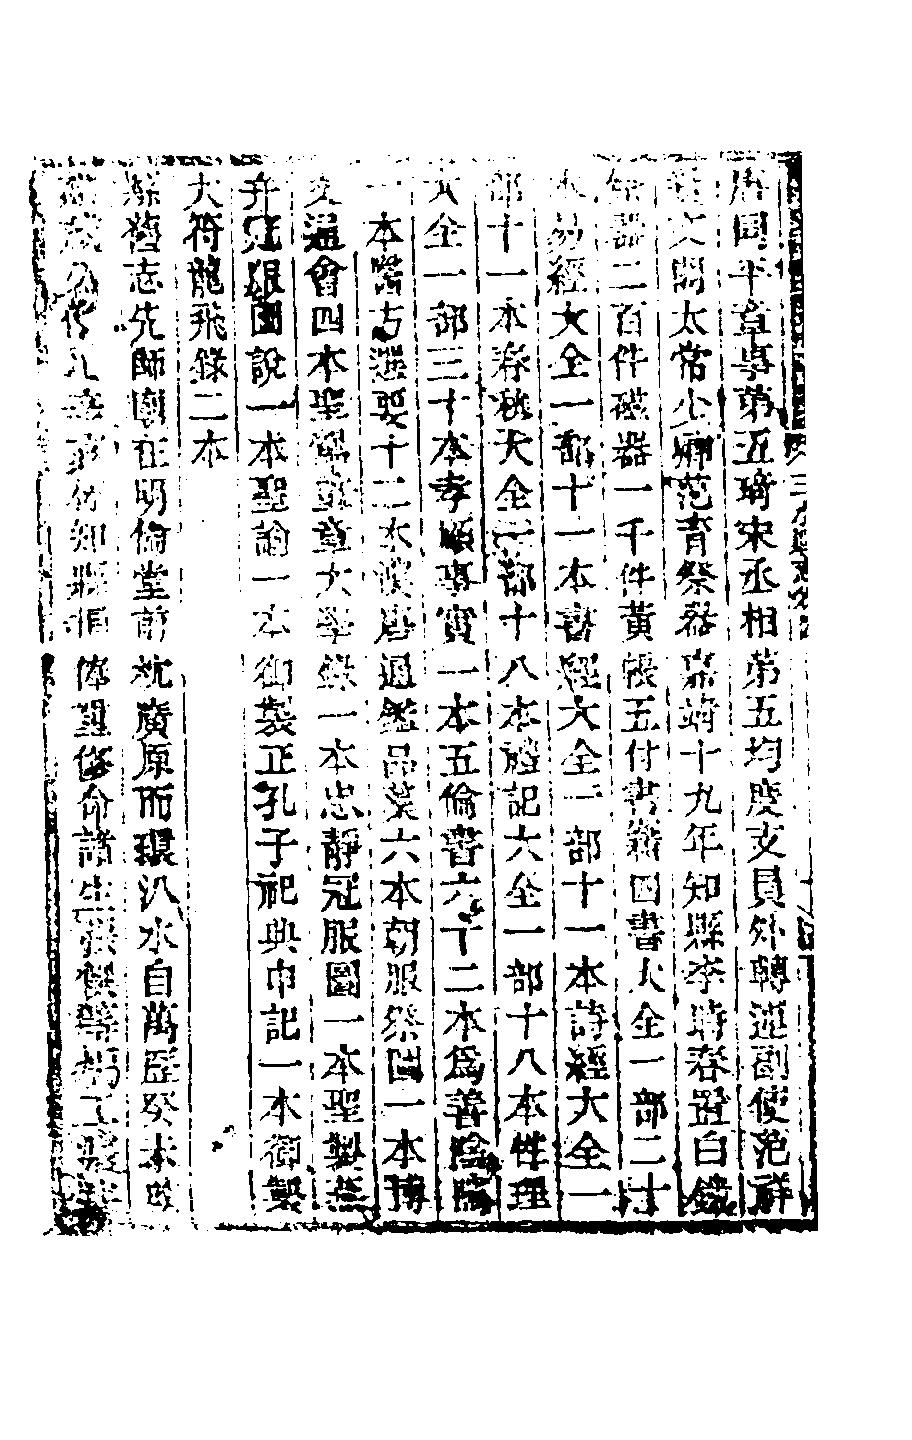 唐同平章事第五琦宋丞相第五均度支員外轉運副使范祥
文閣太常少卿范育祭器嘉靖十九年知縣李時春置白鐵
器二百件磁器一千件黃帳五付書籍四書大全一部二十
本易經大全一部十一本書經大全一部十一本詩經大全一
部十一本春秋大全一部十八本禮記大全一部十八本性理
大全一部三十本孝順事實一本五倫書六十二本為善陰隲
一本嘗古選要十二本漢唐通鑑品藻六本朝服祭圖一本博
通會四本聖駕大學一本忠靜冠服圖一本聖製燕
弁冠服圖說一本聖諭一本御製正孔子祀典申記一本御製
大符龍飛錄二本
縣舊志先師廟在明倫堂前枕廣原而環汃水自萬曆癸未
知縣捧聖修命諸生張等